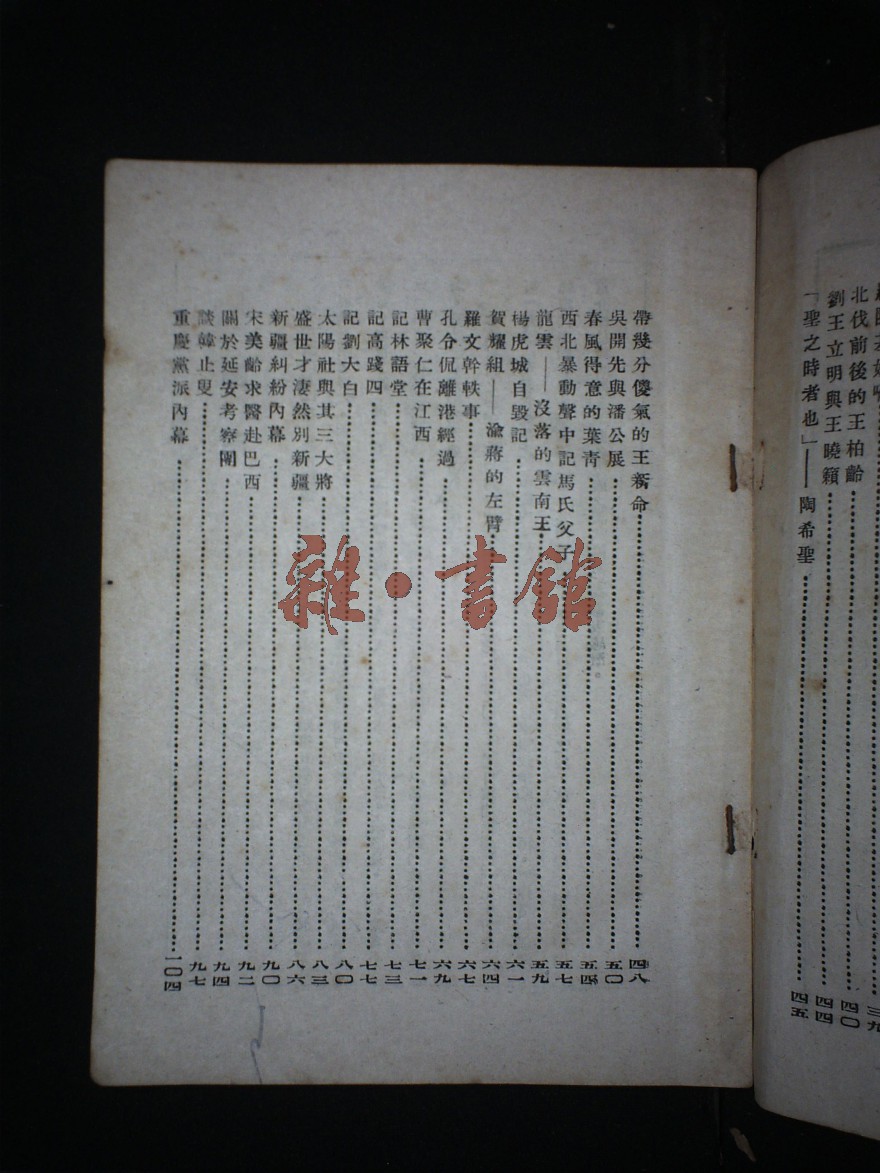 北伐前後的王柏齡…四〇
劉王立明與王曉籟…四四
「聖之時者也」——陶希聖…四五
帶幾分傻氣的王新命…四八
吳開先與潘公展…五〇
春風得意的葉青…五四
西北暴動聲中記馬氏父子…五七
龍雲——沒落的雲南王…五九
楊虎城自毀記…六一
賀耀組——渝蔣的左臂…六四
羅文幹軼事…六七
孔令侃離港經過…六九
曹聚仁在江西…七一
記林語堂…七三
記高踐四…七七
記劉大白…八〇
太陽社與其三大將…八三
盛世才淒然別新疆…八六
新疆糾紛內幕…九〇
宋美齡求醫赴巴西…九二
關於延安考察團…九四
談韓止叟…九七
重慶黨派內幕…一〇四
雜·書館